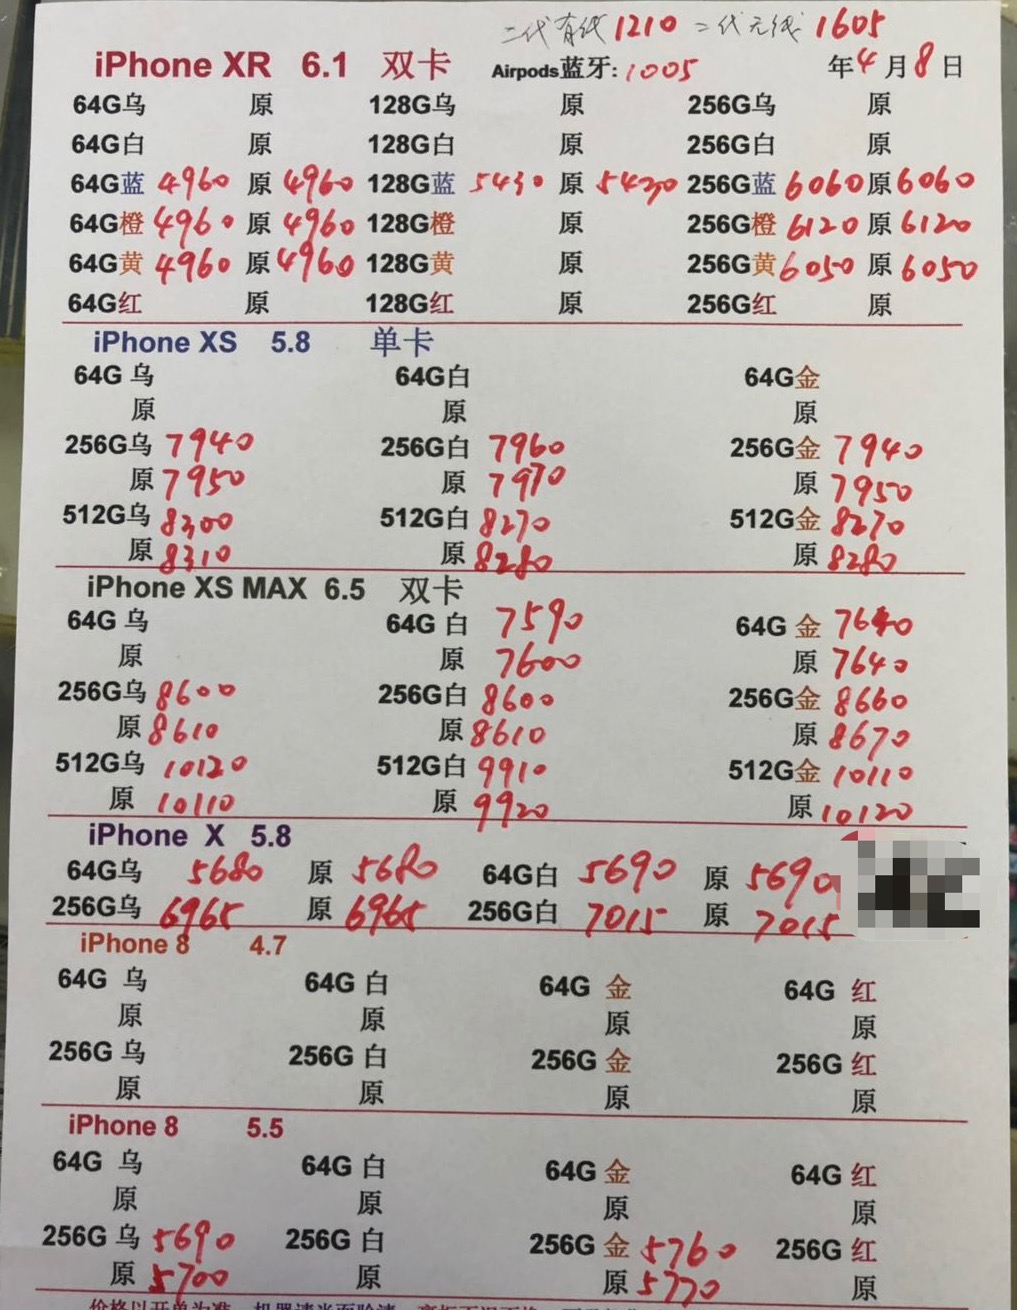 二代有线1210 二代无线1605
iPhone XR 6.1 双卡 Airpods蓝牙:1005 年4月8日
64G乌 原 128G乌 原 256G乌 原
64G白 原 128G白 原 256G白 原
64G蓝 4960 原 4960 128G蓝 5430 原 5430 256G蓝 6060 原 6060
64G橙 4960 原 4960 128G橙 原 256G橙 6120 原 6120
64G黄 4960 原 4960 128G黄 原 256G黄 6050 原 6050
64G红 原 128G红 原 256G红 原
iPhone XS 5.8 单卡
64G 乌 64G白 64G金
原 原 原
256G乌 7940 256G白 7960 256G金 7940
原 7950 原 7970 原 7950
512G乌 8300 512G白 8270 512G金 8270
原 8310 原 8280 原 8280
iPhone XS MAX 6.5 双卡
64G 乌 64G 白 7590 64G 金
原 原 7600 原 7640
256G乌 8600 256G白 8600 256G金 8660
原 8610 原 8610 原 8670
512G乌 10120 512G白 9910 512G金 10110
原 10110 原 9920 原 10120
iPhone X 5.8
64G乌 5680 原 5680 64G白 5690 原 5690
256G乌 6965 原 6965 256G白 7015 原 7015
iPhone 8 4.7
64G 乌 64G 白 64G 金 64G 红
原 原 原 原
256G 乌 256G 白 256G 金 256G 红
原 原 原 原
iPhone 8 5.5
64G 乌 64G 白 64G 金 64G 红
原 原 原 原
256G 乌 5690 256G 白 256G 金 5760 256G 红
原 5700 原 原 5770 原